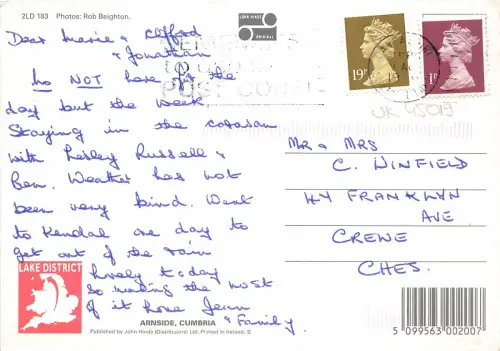 2LD 183 Photos: Rob Beighton.
JOHN HINDE
Dear Marie & Clifford
& Jonathan
No NOT here for the
day but the week.
Staying in the caravan
with Lesley Russell &
Ben. Weather has not
been very kind. Went
to Kendal one day to
get out of the rain
lovely today
so making the most
of it love Jean
& Family.
19P
1P
POST CODE
UK 45019
MR & MRS
C. WINFIELD
44 FRANKLYN
AVE
CREWE
CHES.
LAKE DISTRICT
ARNSIDE, CUMBRIA
Published by John Hinde (Distributors) Ltd. Printed in Ireland. ©
5 099563 002007